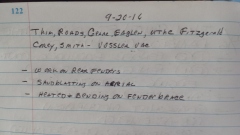 122
9-20-16
Thin, Roads, Gene Eagles, Fitzgerald
Carey, Smith - Vossler Van
- Work on Rear Fenders
- Sandblasting on Aerial
- Heated & Bending on Fender Brace